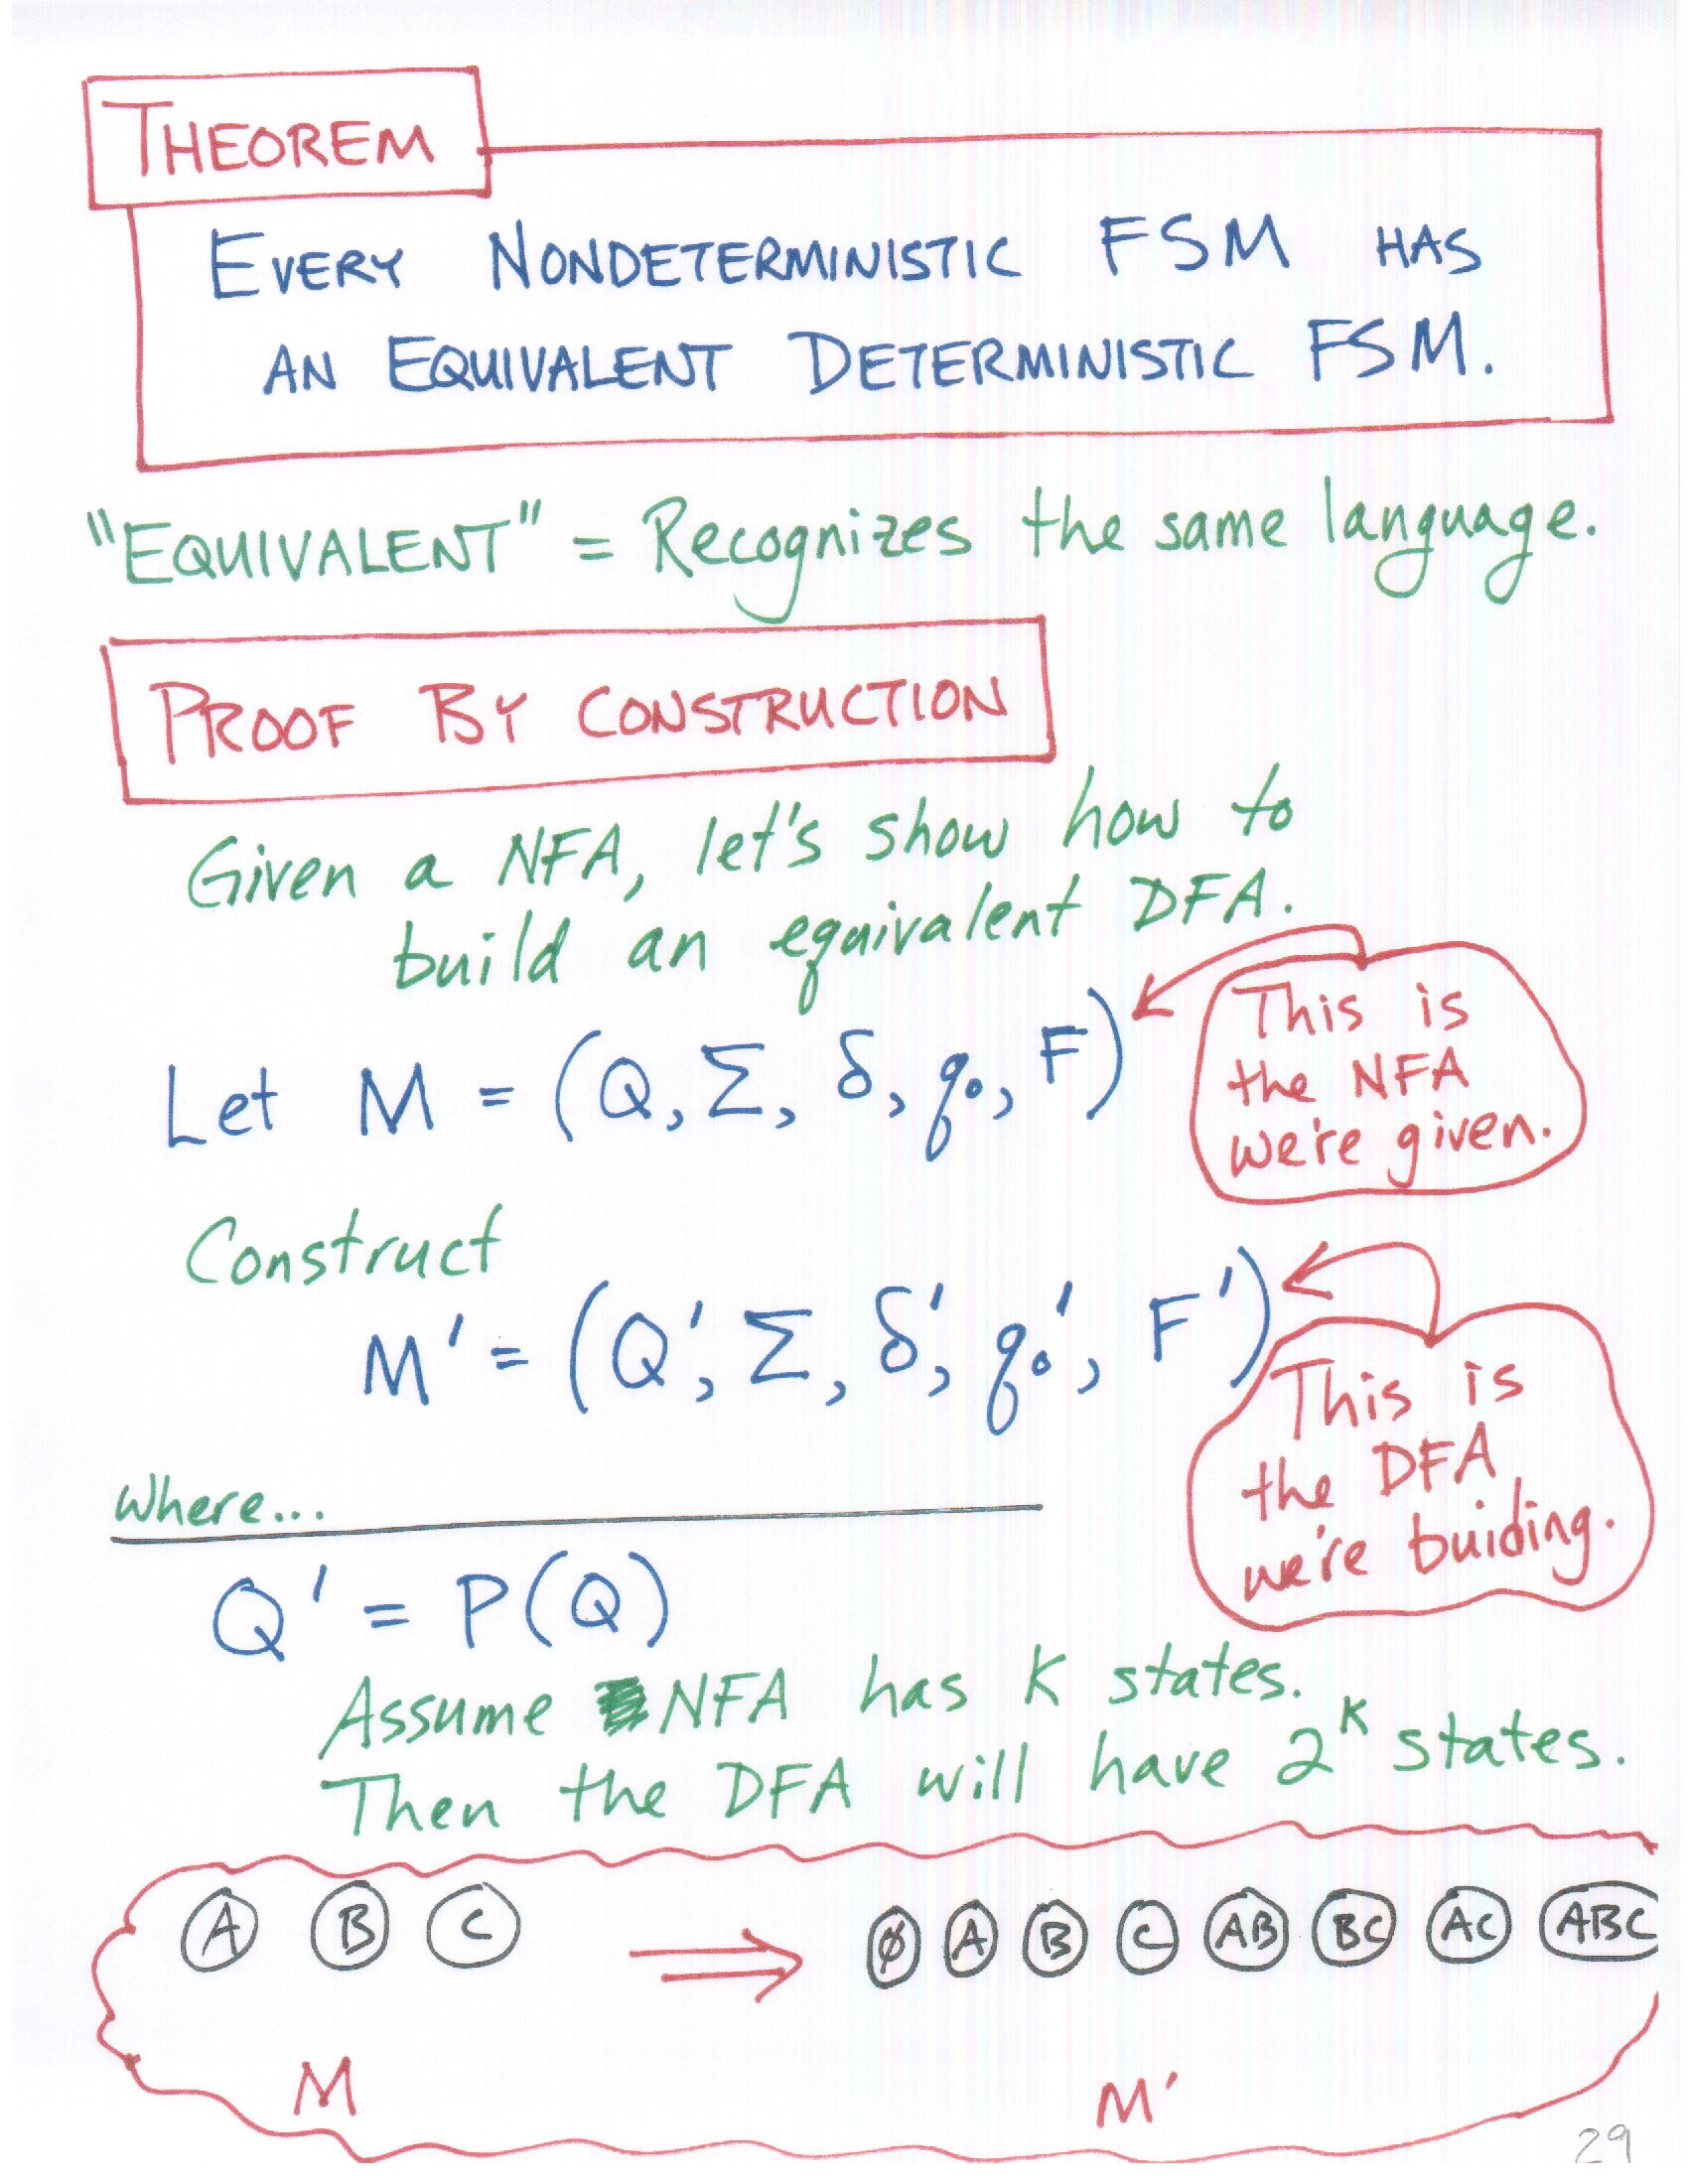 THEOREM
EVERY NONDETERMINISTIC FSM HAS
AN EQUIVALENT DETERMINISTIC FSM.
"EQUIVALENT" = Recognizes the same language.
PROOF BY CONSTRUCTION
Given a NFA, let's show how to
build an equivalent DFA.
Let M = (Q, Σ, δ, q₀, F)
This is
the NFA
we're given.
Construct
M' = (Q', Σ, δ', q₀', F')
This is
the DFA
we're buiding.
Where...
Q' = P(Q)
Assume NFA has K states.
Then the DFA will have 2ᴷ states.
A B C ⇒ ∅ A B C AB BC AC ABC
M M'
29